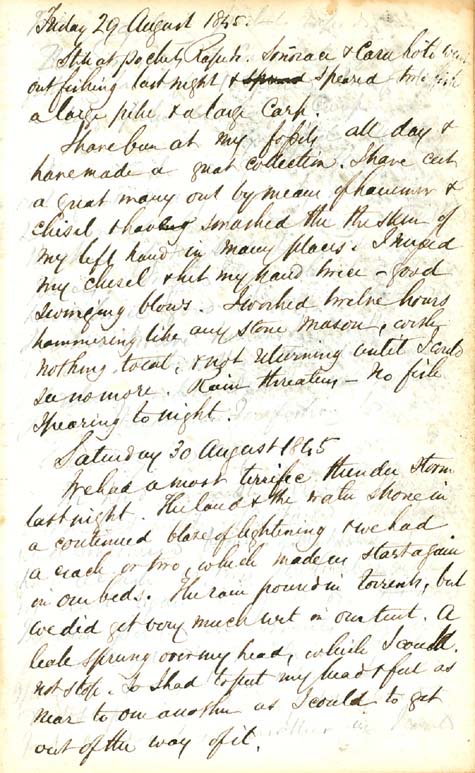 Friday 29 August 1845.
Still at Pockets Rapids. Sonorace & Cara hote were
out fishing last night & speared two fish
a large pike & a large Carp.
I have been at my fossils all day &
have made a great collection. I have cut
a great many out by means of hammer &
chisel & having smashed the the skin of
my left hand in many places. I missed
my chisel & hit my hand twice – good
swinging blows. I worked twelve hours
hammering like any stone mason, with
nothing to eat, & not returning until I could
see no more. Rain threatens – No fish
spearing to night.
Saturday 30 August 1845
We had a most terrific thunder storm
last night. The land & the water shone in
a continued blaze of lightening & we had
a crack or two, which made us start again
in our beds. The rain poured in torrents, but
we did get very much wet in our tent. A
leak sprung over my head, which I could
not stop. So I had to put my head & feet as
near to one another as I could to get
out of the way of it.